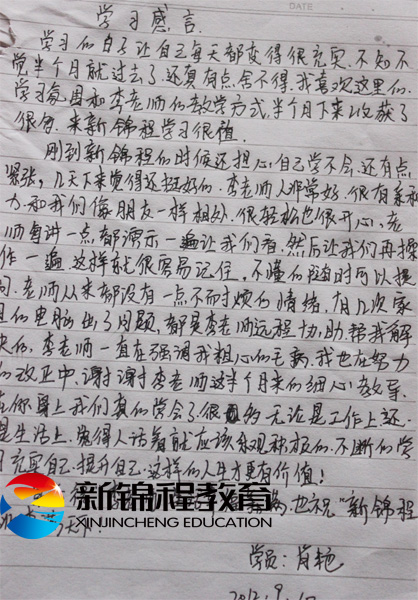 DATE
学习感言
学习的日子让自己每天都变得很充实,不知不
觉半个月就过去了还真有点舍不得.我喜欢这里的
学习氛围和李老师的教学方式,半个月下来收获了
很多.来新锦程学习很值.
刚到新锦程的时候还担心自己学不会,还有点
紧张,几天下来觉得还挺好的.李老师人非常好.很有亲和
力和我们像朋友一样相处.很轻松也很开心.老
师每讲一点都演示一遍让我们看.然后让我们再操
作一遍.这样就很容易记住,不懂的随时可以提
问.老师从来都没有一点不耐烦的情绪,有几次家
里的电脑出了问题,都是李老师远程协助帮我解
决的.李老师一直在强调我粗心的毛病,我也在努力
的改正中,谢谢李老师这半个月来的细心教导.
在你身上我们真的学会了很多的无论是工作上还
是生活上.觉得人活着就应该乐观积极的.不断的学
习充实自己.提升自己.这样的人生才更有价值!
新锦程教育
XINJINCHENG EDUCATION
也祝"新锦程
学员:肖艳
2012.9.